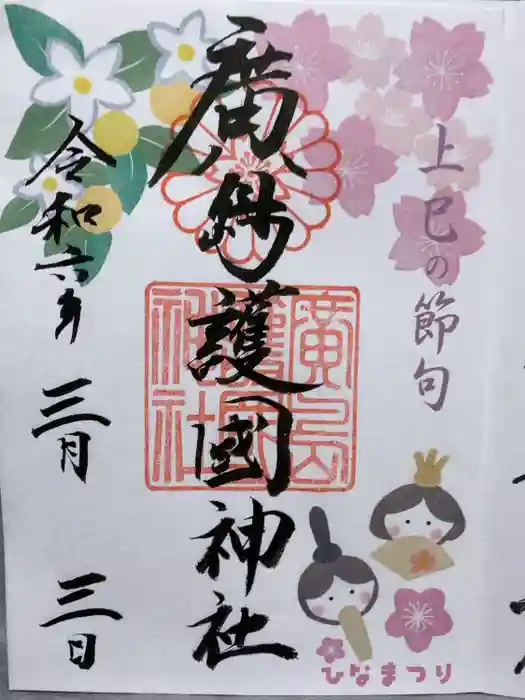 上巳の節句
廣島護國神社
廣島護國神社
令和六年
三月
三日
ひなまつり